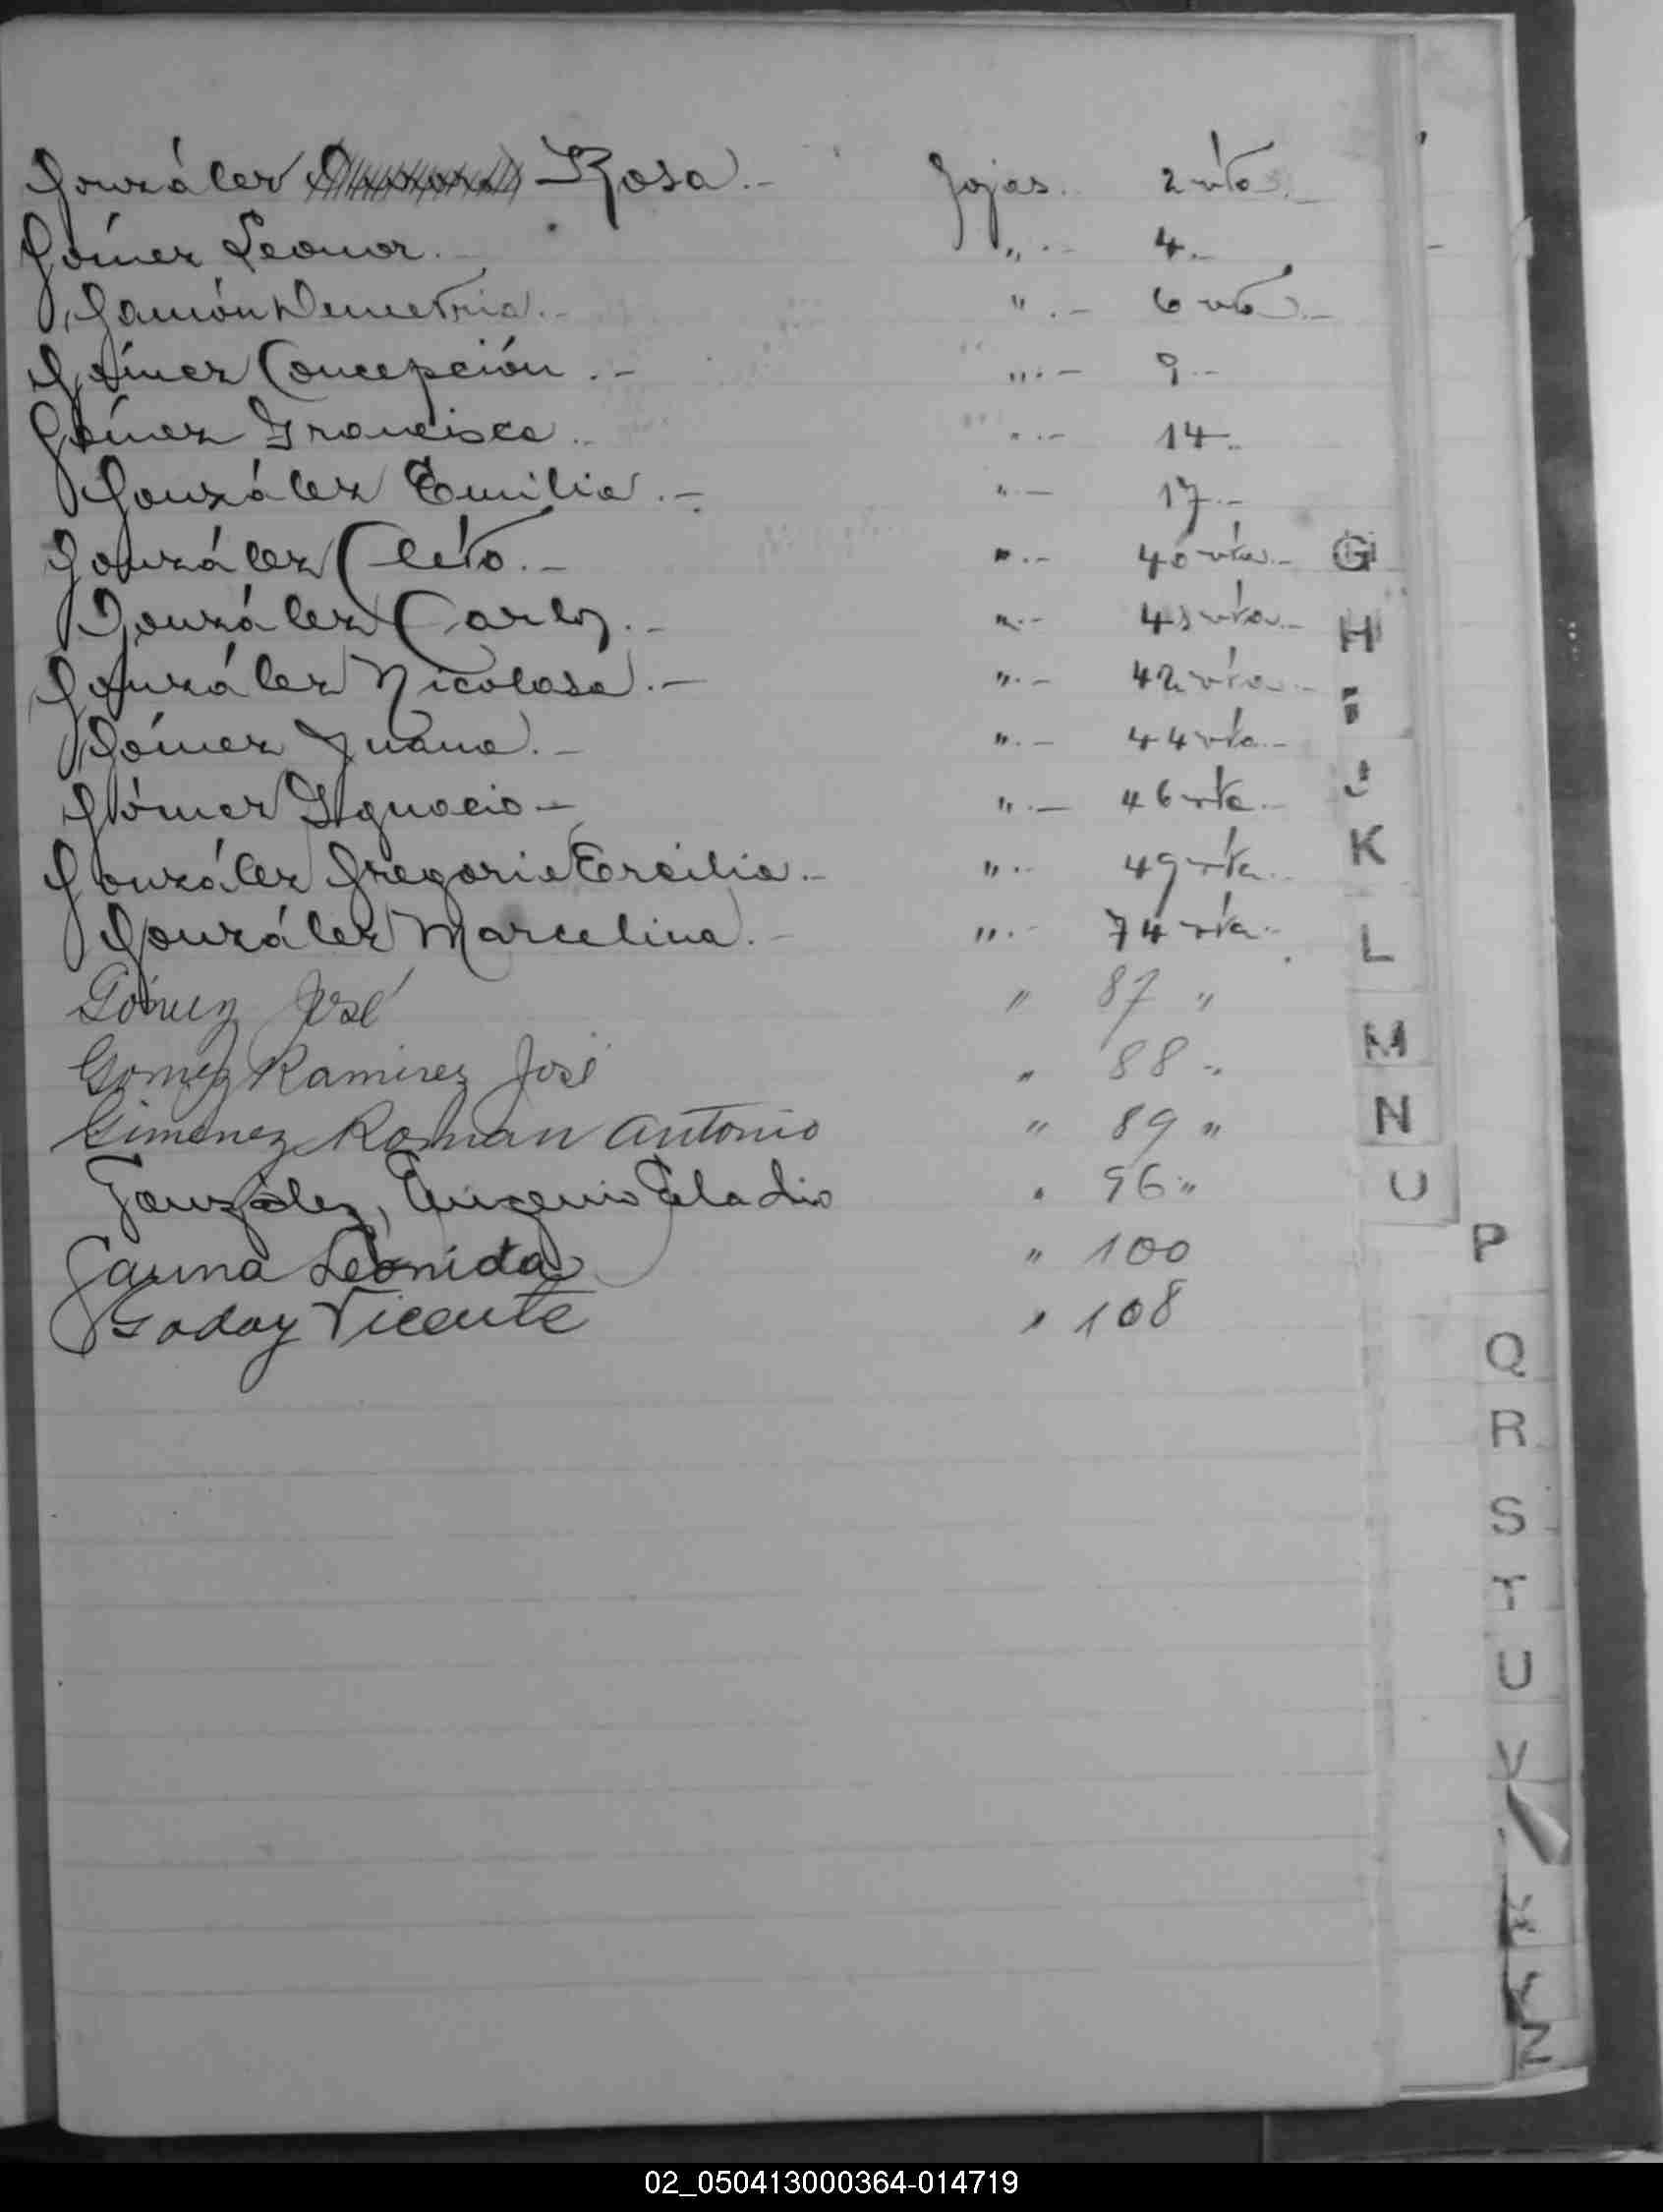 González Rosa.- fojas. 2 vta.-
Gómez Leonor.- ".- 4.-
Gamón Demetria.- ".- 6 vta.-
Gómez Concepción.- ".- 9.-
Gómez Francisca.- ".- 14.-
González Emilia.- ".- 17.-
González Cleto.- ".- 40 vta.-
González Carlos.- ".- 43 vta.-
González Nicolasa.- ".- 42 vta.-
Gómez Juana.- ".- 44 vta.-
Gómez Ygnacio.- ".- 46 vta.-
González Gregoria Ercilia.- ".- 49 vta.-
González Marcelina.- ".- 74 vta.-
Gómez José " 87 "
Gomez Ramirez José " 88 "
Gimenez Roman Antonio " 89 "
González, Eugenio Eladio " 96 "
Gauna Leonida " 100
Godoy Vicente " 108
G
H
I
J
K
L
M
N
O
P
Q
R
S
T
U
V
Y
Z
02_050413000364-014719